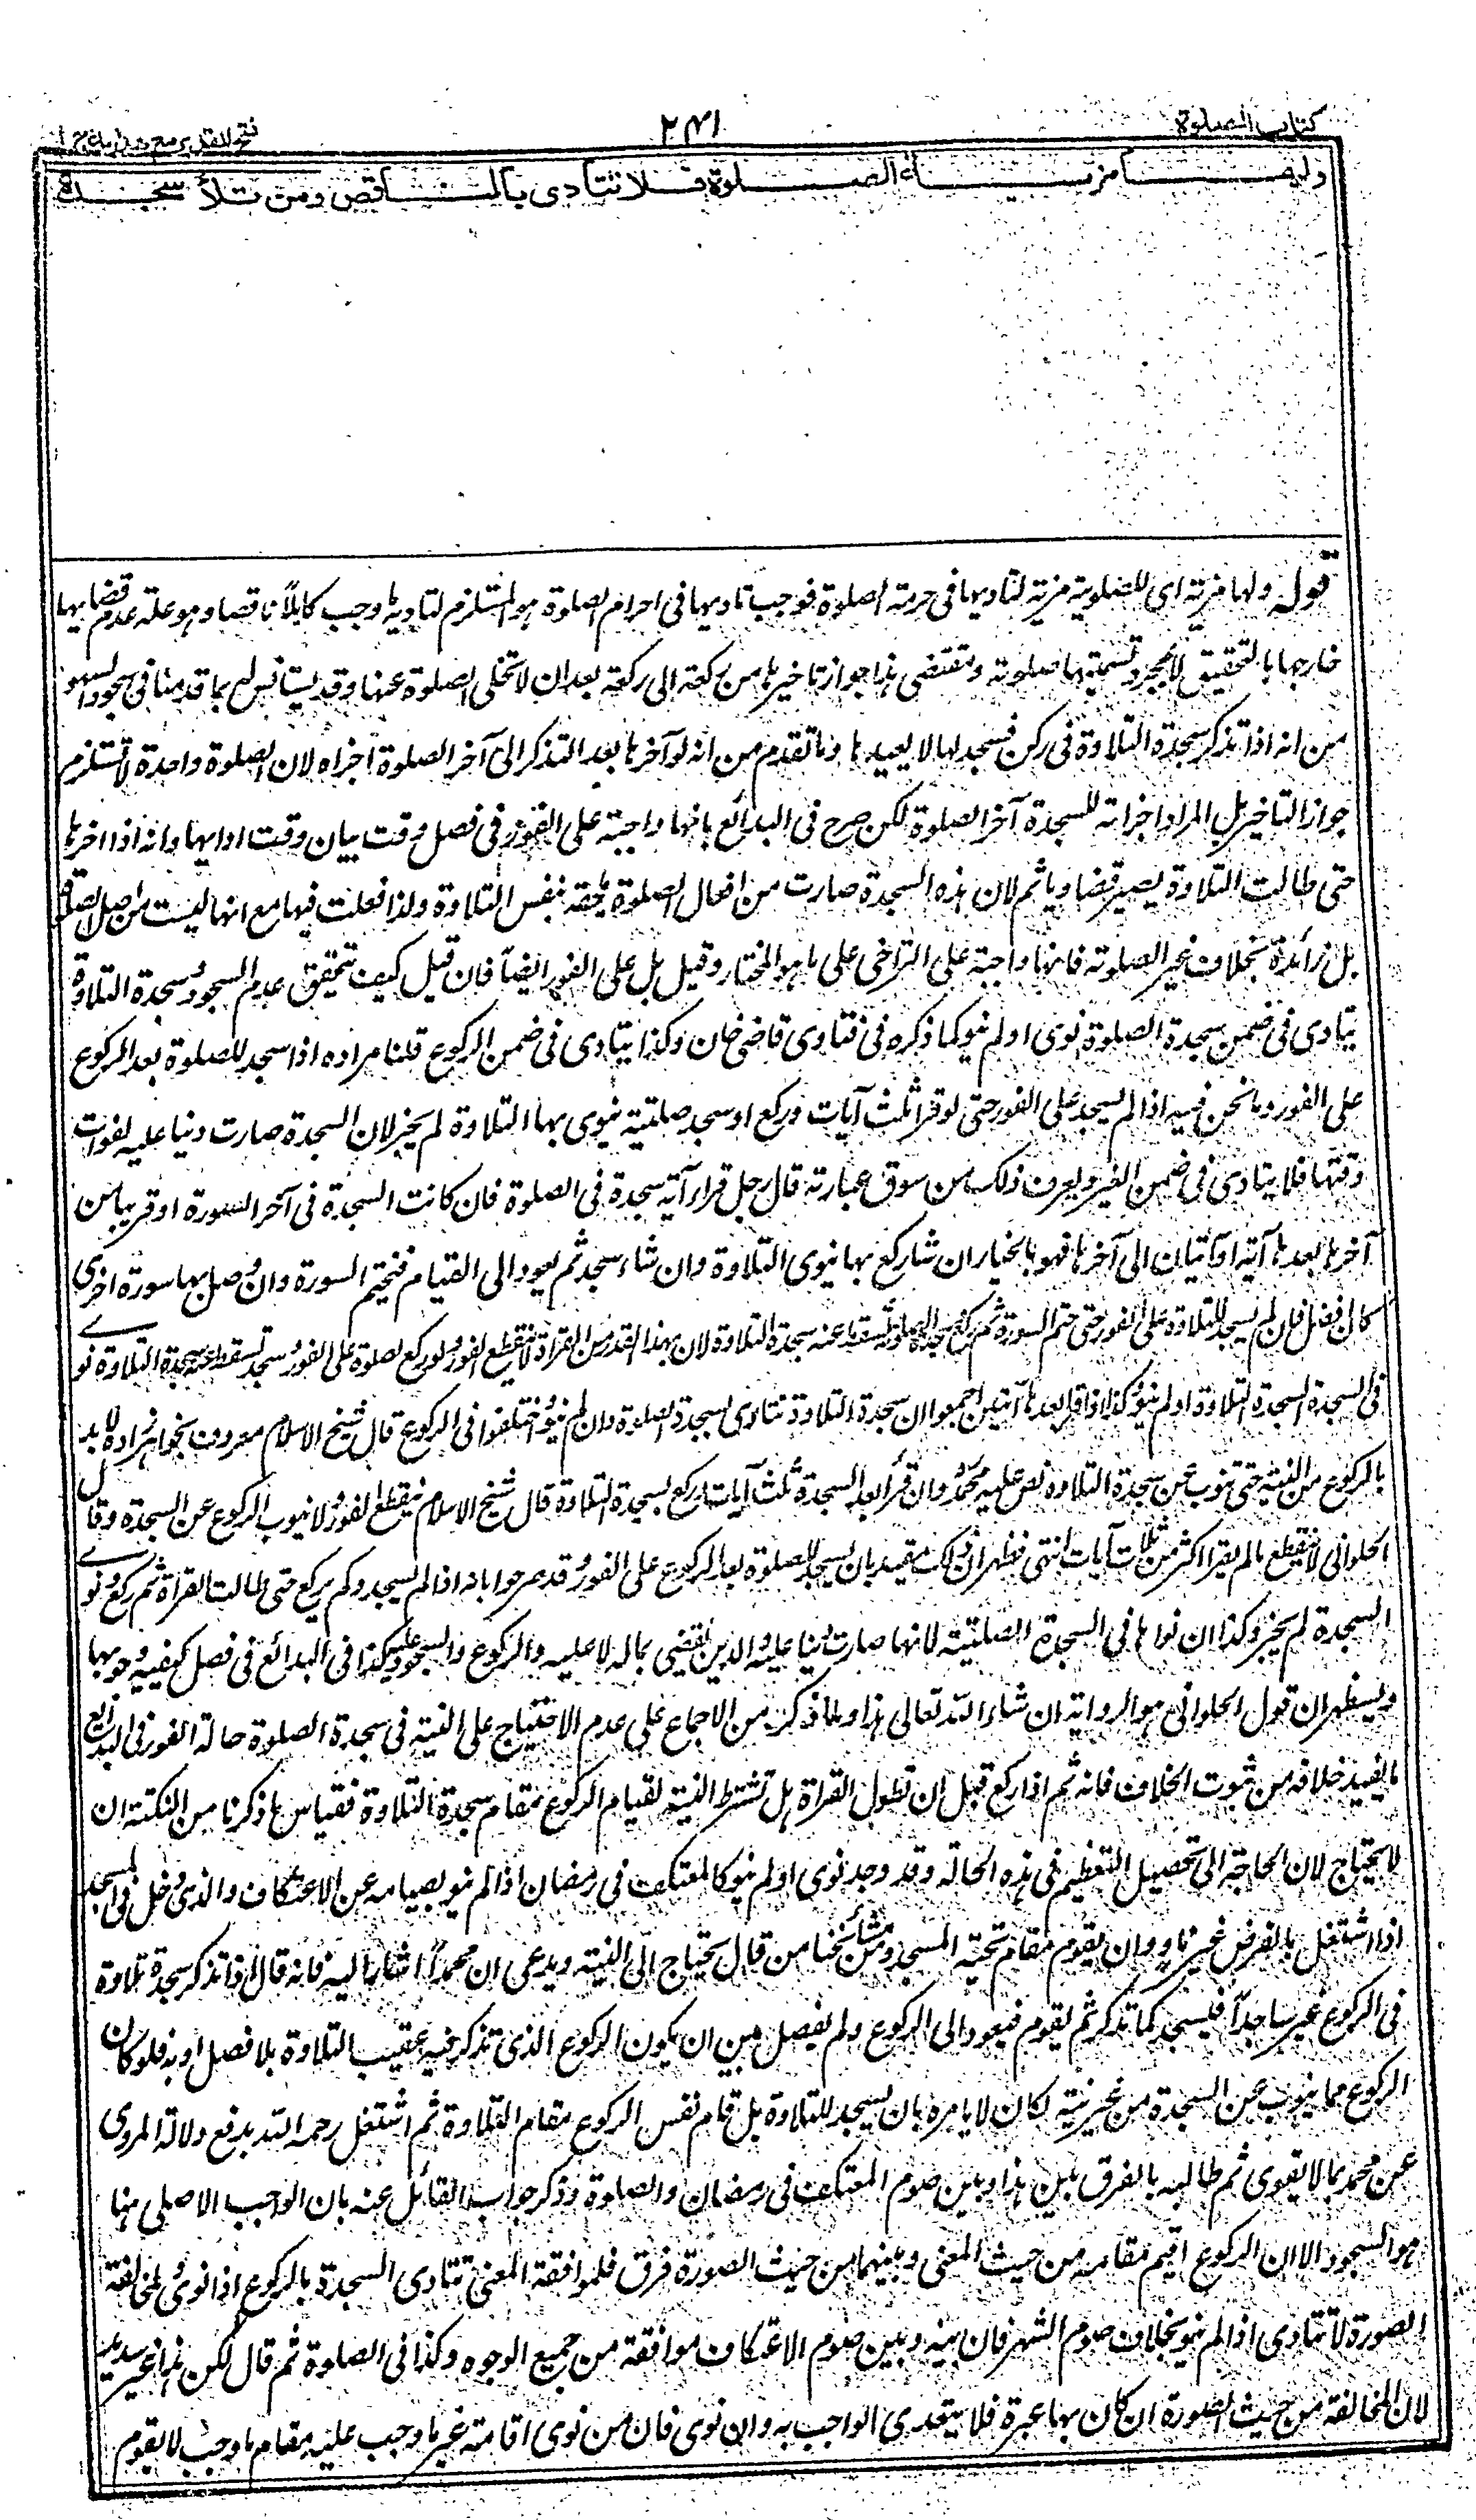 كتاب الصلوة
٢٤١
فتح القدير مع هدايه ج ١
ولها مزية الصلوة فلا تتأدى بالناقص ومن تلا سجدة
قوله ولها مزية اى للصلوتية مزية لتاديها فى حرمة الصلوة فوجب تاديها فى احرام الصلوة هو المستلزم لتادية ما وجب كاملاً ناقصا وهو علة عدم قضايها
خارجها بالتحقيق لا بمجرد تسميتها صلوتية ومقتضى هذا جواز تاخيرها من ركعة الى ركعة بعد ان لا تخلى الصلوة عنها وقد يستانس له بما قدمنا فى سجود السهو
من انه اذا تذكر سجدة التلاوة فى ركن فسجد لها لا يعيده وما تقدم من انه لو آخرها بعد التذكر الى آخر الصلوة اجزاه لان الصلوة واحدة لا تستلزم
جواز التاخير بل المراد اجزائه للسجدة آخر الصلوة لكن صرح فى البدائع بانها واجبة على الفور فى فصل وقت بيان وقت ادايها وانه اذا اخرها
حتى طالت التلاوة يصير قضا وياثم لان هذه السجدة صارت من افعال الصلوة ملحقة بنفس التلاوة ولذا فعلت فيها مع انها ليست من اصل الصلوة
بل زائدة بخلاف غير الصلوتية فانها واجبة على التراخى على ما هو المختار وقيل بل على الفور ايضاً فان قيل كيف يتحقق عدم السجود وسجدة التلاوة
يتادى فى ضمن سجدة الصلوة نوى او لم ينو كما ذكره فى فتاوى قاضى خان وكذا يتادى فى ضمن الركوع قلنا مراده اذا سجد للصلوة بعد الركوع
على الفور وما نحن فيه اذا لم يسجد على الفور حتى لو قرا ثلث آيات وركع او سجد صلبية ينوى بها التلاوة لم يجز لان السجدة صارت دنيا عليه لفوات
وقتها فلا يتادى فى ضمن الغير ويعرف ذلك من سوق عبارته قال رجل قراء آية سجدة فى الصلوة فان كانت السجدة فى آخر السورة او قريبا من
آخرها بعدها آية او آيتان الى آخرها فهو بالخيار ان شا ركع بها ينوى التلاوة وان شاء سجد ثم يعود الى القيام فيختم السورة وان وصل بها سورة اخرى
كان افضل فان لم يسجد للتلاوة على الفور حتى ختم السورة ثم ركع وسجد للصلوة تسقط عنه سجدة التلاوة لان بهذا القدر من القراة لا ينقطع الفور ولو ركع لصلوة على الفور وسجد تسقط عنه سجدة التلاوة نوى
فى السجدة السجدة التلاوة او لم ينو وكذا اذا قرا بعدها آيتين اجمعوا ان سجدة التلاوة تتادى بسجدة الصلوة وان لم ينو واختلفوا فى الركوع قال شيخ الاسلام معروف بخواهر زاده لا بد
بالركوع من النية حتى تنوب عن سجدة التلاوة نص عليه محمدؒ وان قرأ بعد السجدة ثلث آيات وركع لسجدة التلاوة قال شيخ الاسلام ينقطع الفور ولا ينوب الركوع عن السجدة وقال
الحلوانى لا ينقطع مالم يقرا اكثر من ثلاث آيات انتهى فظهر ان ذلك مقيد بان يسجد للصلوة بعد الركوع على الفور وقد صرحوا بانه اذا لم يسجد ولم يركع حتى طالت القراة ثم ركع ونوى
السجدة لم يجز وكذا ان نواها فى السجدة الصلبية لانها صارت دينا عليه والدين يقضى بماله لا عليه والركوع والسجود عليه كذا فى البدائع فى فصل كيفية وجوبها
وسيظهر ان قول الحلوانى هو الرواية ان شاء الله تعالى هذا وما ذكر من الاجماع على عدم الاحتياج على النية فى سجدة الصلوة حالة الفور فى البدائع
ما يفيد خلافه من ثبوت الخلاف فانه ثم اذا ركع قبل ان تطول القراة هل تشترط النية لقيام الركوع مقام سجدة التلاوة فقياس ما ذكرنا من النكتة ان
لا يحتاج لان الحاجة الى تحصيل التعظيم فى هذه الحالة وقد وجد نوى او لم ينو كالمعتكف فى رمضان اذا لم ينو بصيامه عن الاعتكاف والذى دخل فى المسجد
اذا اشتغل بالفرض غير ناو وان يقوم مقام تحية المسجد ومن مشائخنا من قال يحتاج الى النية ويدعى ان محمداً اشار اليه فانه قال اذا تذكر سجدة تلاوة
فى الركوع غير ساجداً فليسجد كما تذكر ثم يقوم فيعود الى الركوع ولم يفصل بين ان يكون الركوع الذى تذكر فيه عقيب التلاوة بلا فصل او به فلو كان
الركوع مما ينوب عن السجدة من غير نية لكان لا يامره بان يسجد للتلاوة بل قام نفس الركوع مقام التلاوة ثم اشتغل رحمه الله بدفع دلالة المروى
عن محمد بما لا يقوى ثم طالبه بالفرق بين هذا وبين صوم المعتكف فى رمضان والصلوة وذكر جواب القائل عنه بان الواجب الاصلى هنا
هو السجود الا ان الركوع اقيم مقامه من حيث المعنى وبينهما من حيث الصورة فرق فلموافقة المعنى تتادى السجدة بالركوع اذا نوى ولمخالفة
الصورة لا تتادى اذا لم ينو بخلاف صوم الشهر فان بينه وبين صوم الاعتكاف موافقة من جميع الوجوه وكذا فى الصلوة ثم قال لكن هذا غير سديد
لان المخالفة من حيث الصورة ان كان بها عبرة فلا يتعدى الواجب به وان نوى فان من نوى اقامة غير ما وجب عليه مقام ما وجب لا يقوم